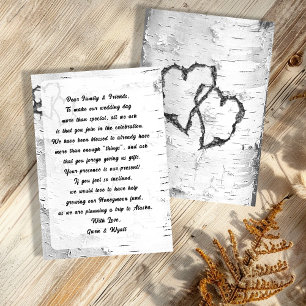 Dear Family & Friends,
To make our wedding day
more than special, all we ask
is that you join in the celebration.
We have been blessed to already have
more than enough "things", and ask
that you forego giving us gift.
Your presence is our present!
If you feel so inclined,
we would love to have help
growing our Honeymoon fund,
as we are planning a trip to Alaska.
With Love,
Gwen & Wyatt